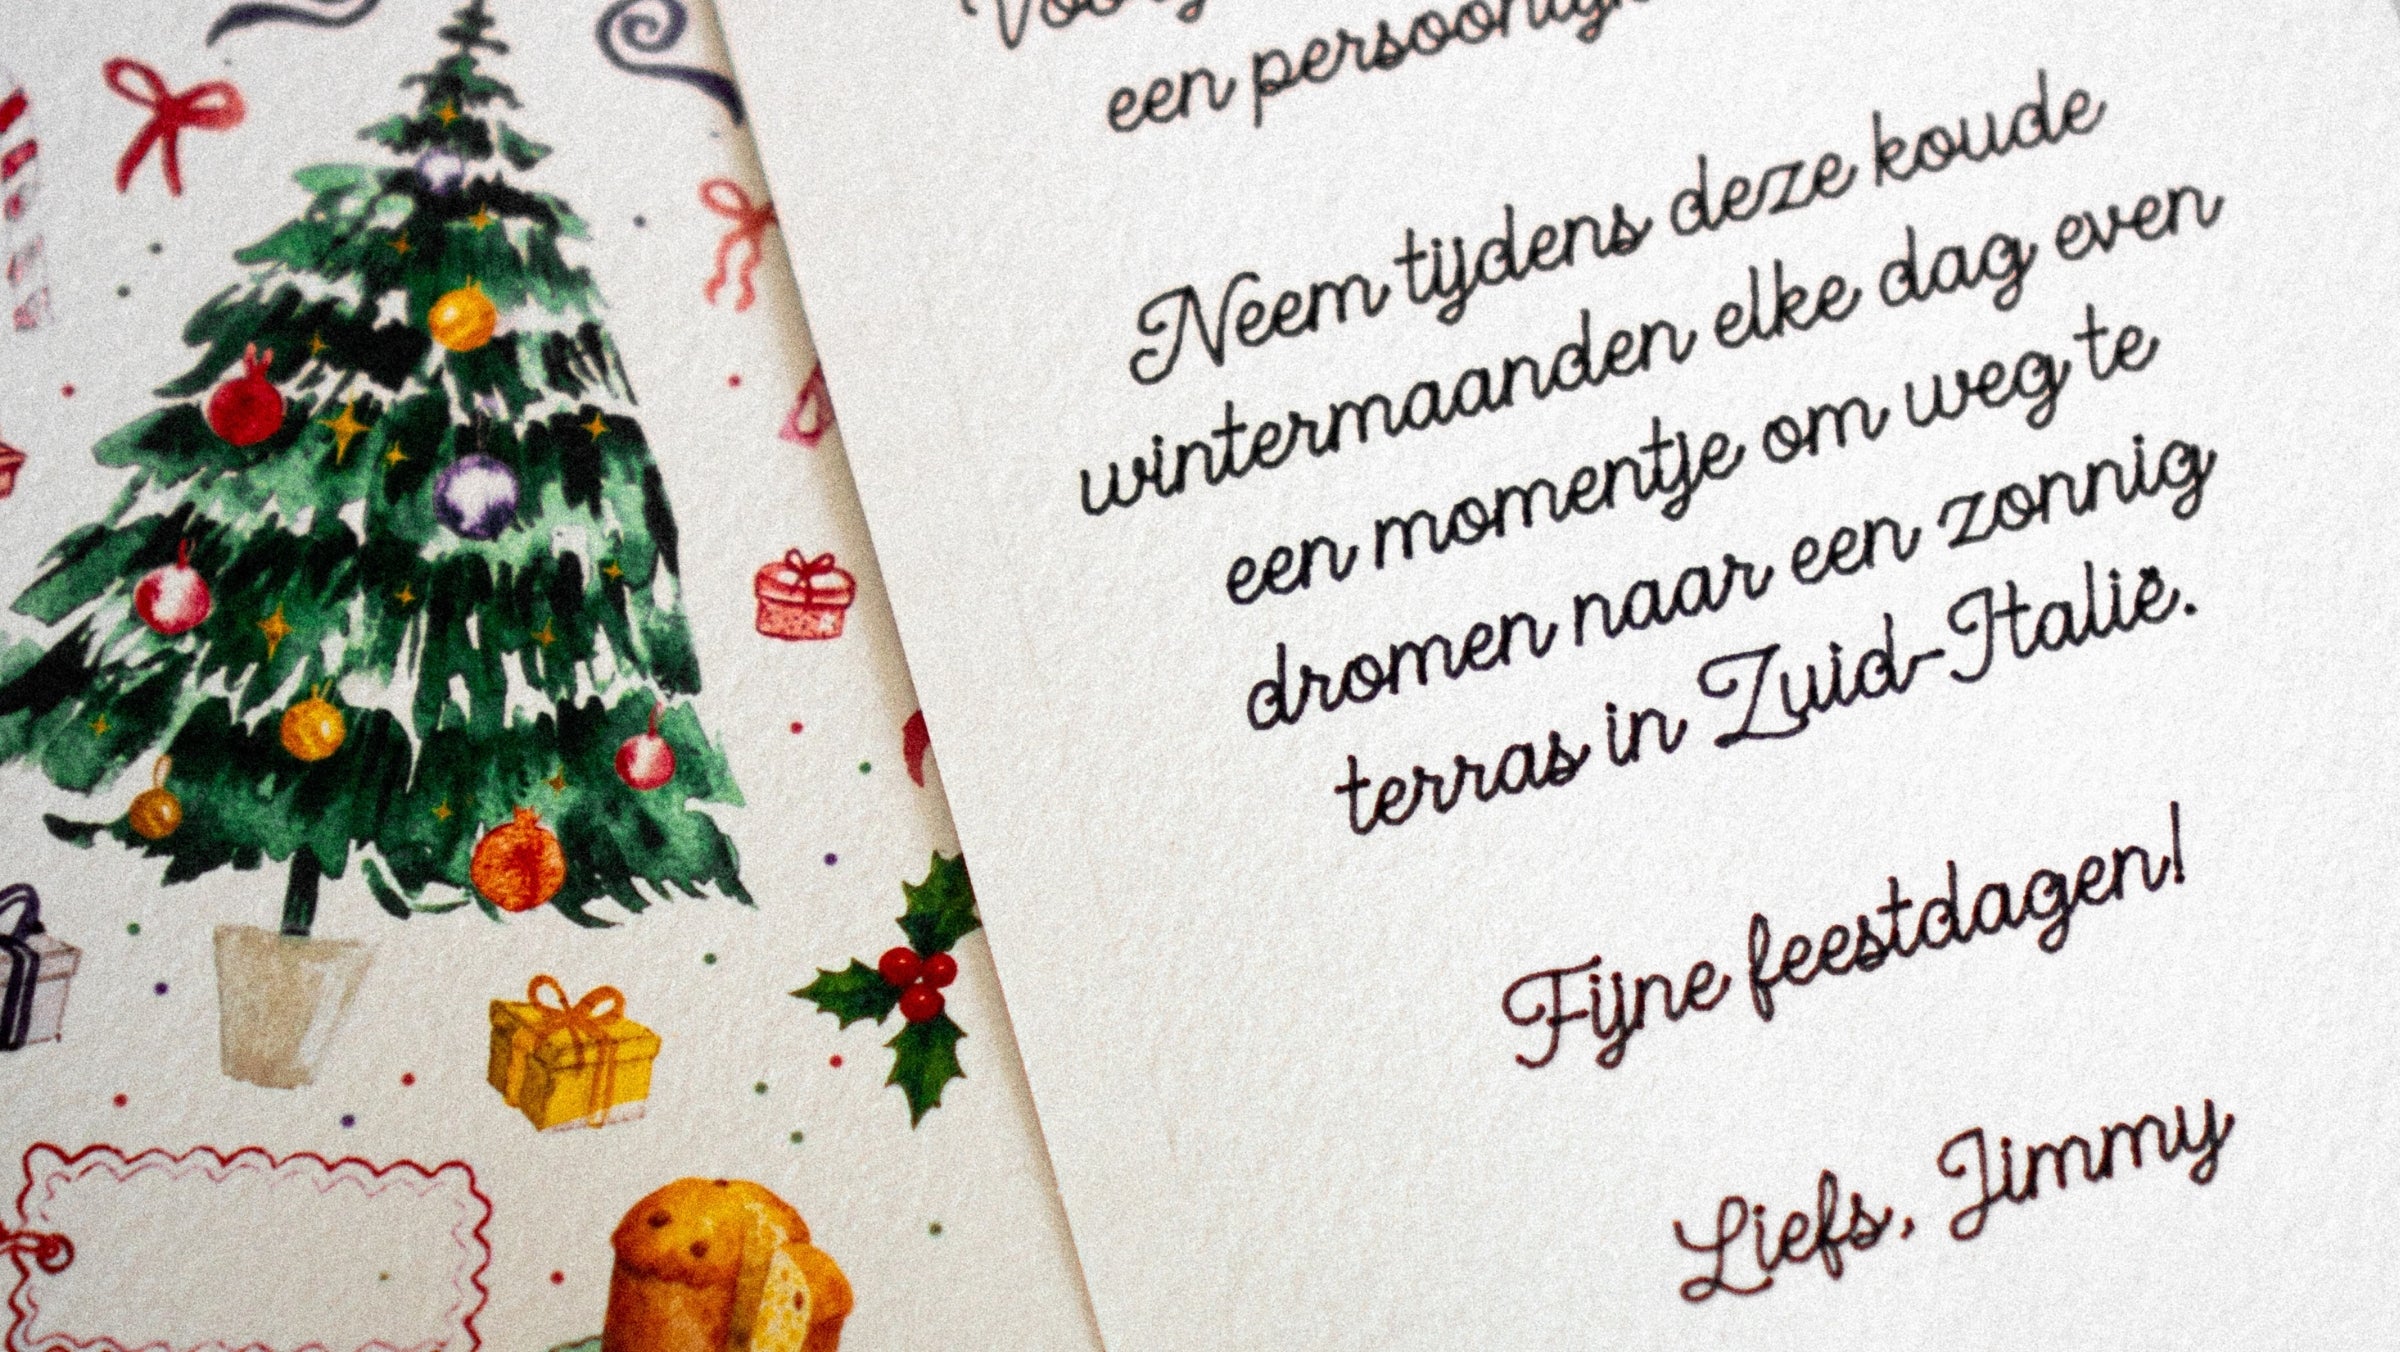 een
Neem tijdens deze koude
wintermaanden elke dag even
een momentje om weg te
dromen naar een zonnig
terras in Zuid-Italië.
Fijne feestdagen!
Liefs, Jimmy